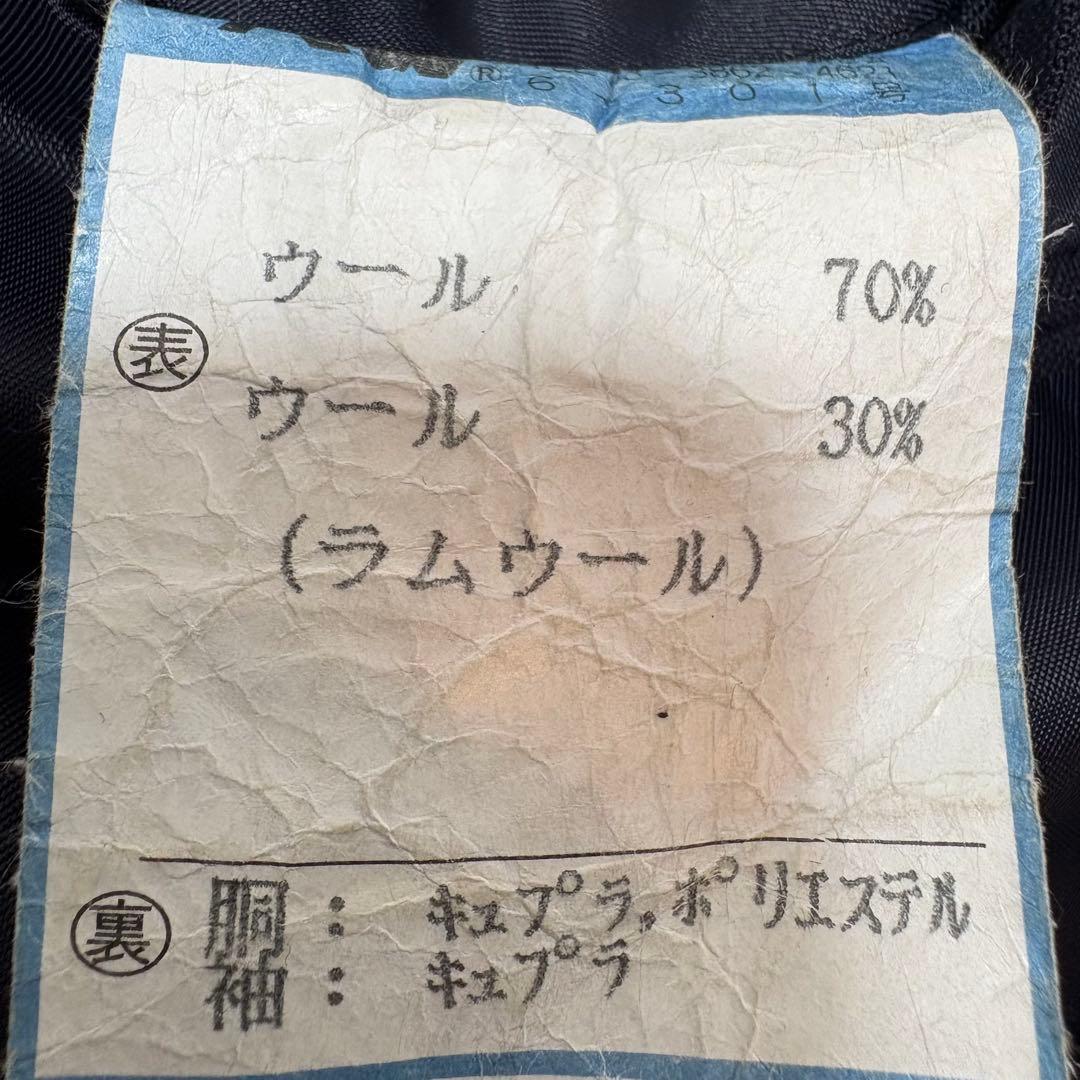 ®
301号
ウール 70%
表
ウール 30%
(ラムウール)
裏 胴: キュプラ,ポリエステル
袖: キュプラ